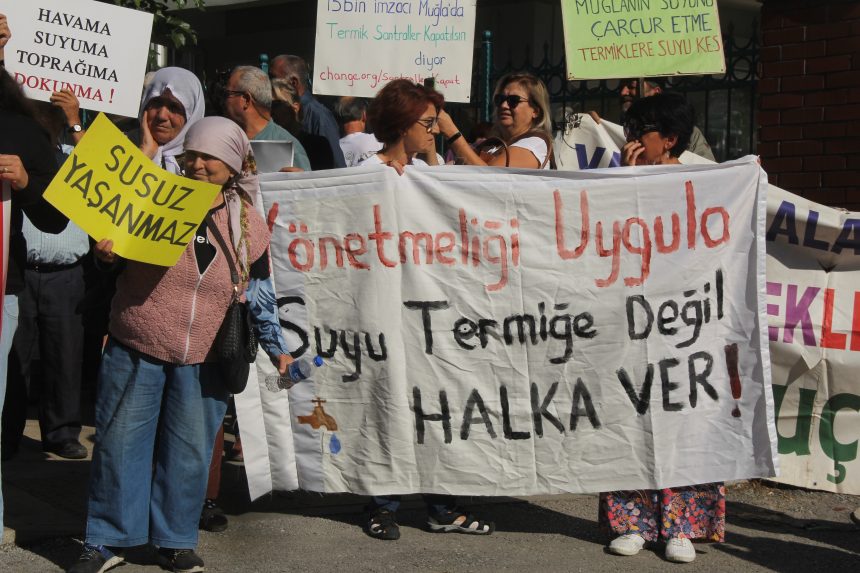 HAVAMA
SUYUMA
TOPRAĞIMA
DOKUNMA!
15bin imzacı Muğla'da
Termik Santraller Kapatılsın
diyor
change.org/SantralleriKapat
MUĞLANIN SUYUNU
ÇARÇUR ETME
TERMİKLERE SUYU KES
SUSUZ
YAŞANMAZ
Yönetmeliği Uygula
Suyu Termiğe Değil
HALKA VER!